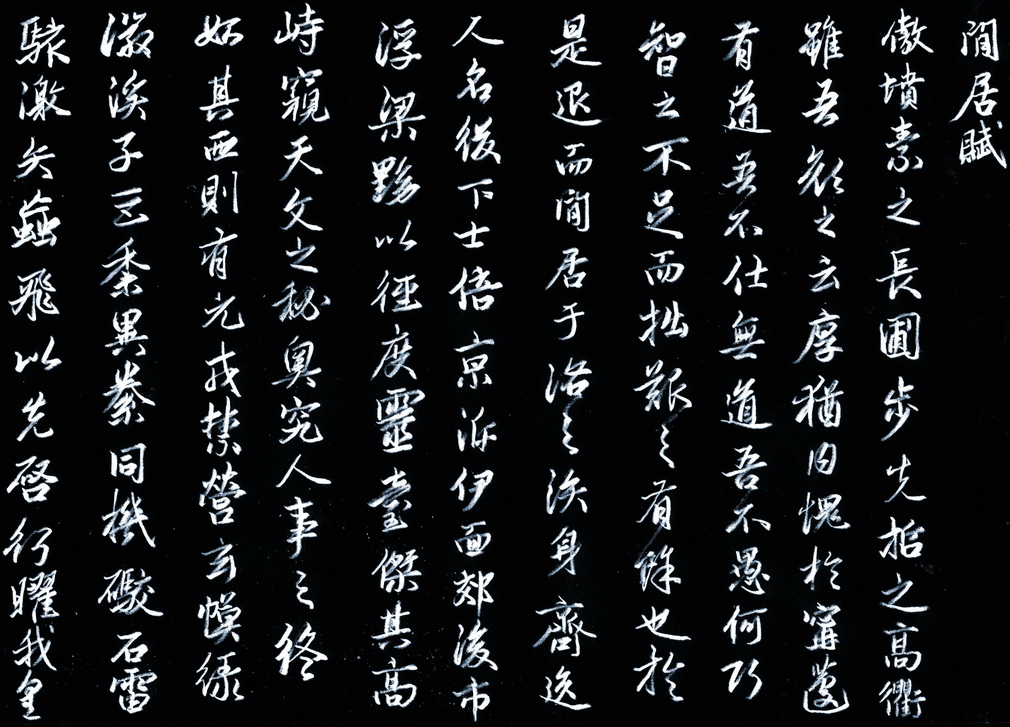 閒居賦
傲墳素之長圃步先哲之高衢
雖吾顏之云厚猶内愧於甯蘧
有道吾不仕無道吾不愚何巧
智之不足而拙艱之有餘也於
是退而閒居于洛之涘身齊逸
人名後下士倍京泝伊面郊後市
浮梁黝以徑度靈臺傑其高
峙窺天文之秘奧究人事之終
始其西則有元戎禁營玄幙綠
徽溪子巨黍異絭同機礮石雷
駭激矢蝱飛以先啓行曜我皇